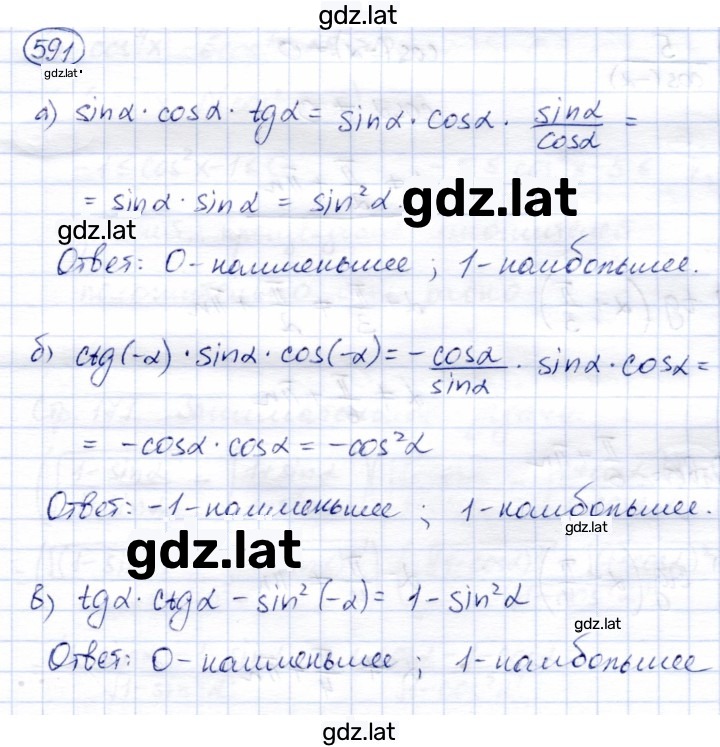 gdz.lat
591
gdz.lat
а) sinα · cosα · tgα = sinα · cosα · sinα/cosα =
= sinα · sinα = sin²α.
gdz.lat
gdz.lat
Ответ: 0 - наименьшее ; 1 - наибольшее.
б) ctg(-α) · sinα · cos(-α) = - cosα/sinα · sinα · cosα =
= -cosα · cosα = -cos²α
Ответ: -1 - наименьшее ; 1 - наибольшее.
gdz.lat
gdz.lat
в) tgα · ctgα - sin²(-α) = 1 - sin²α
gdz.lat
Ответ: 0 - наименьшее ; 1 - наибольшее
gdz.lat